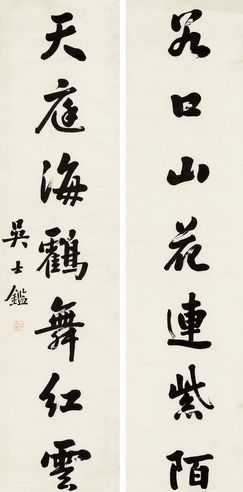 谷口山花連紫陌
天庭海鶴舞紅雲
吳士鑑